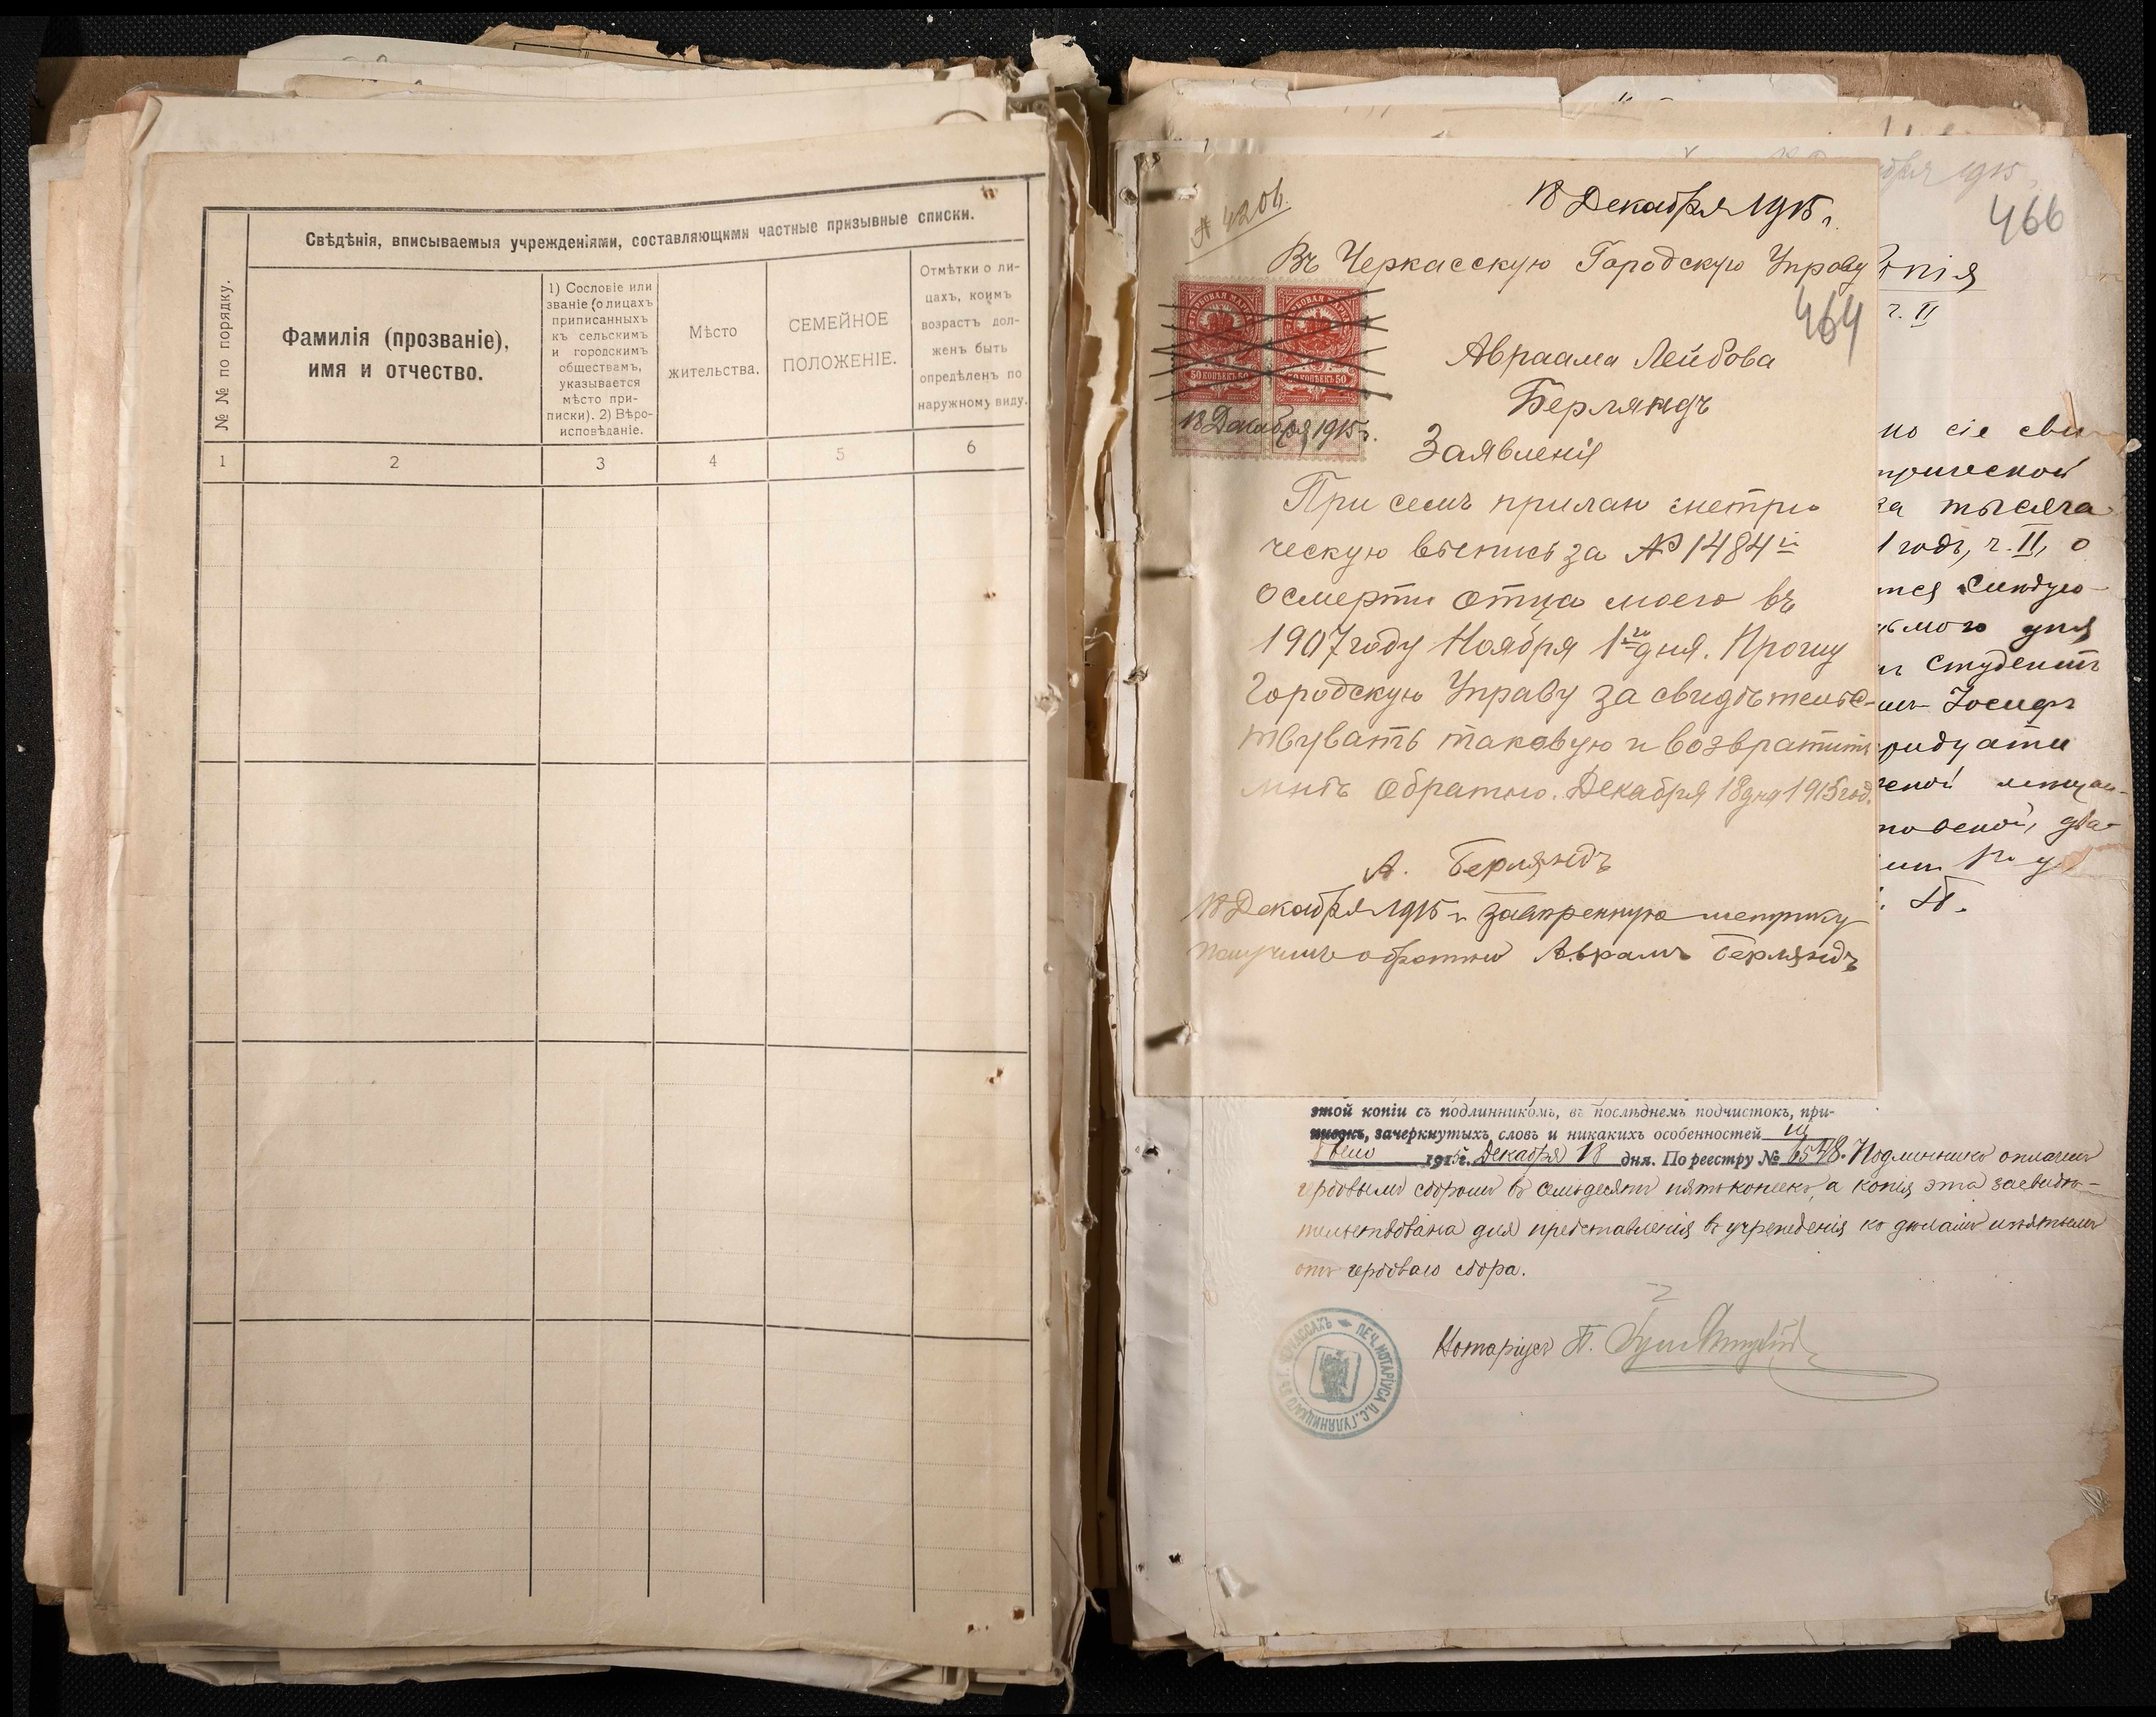 Свѣдѣнія, вписываемыя учрежденіями, составляющими частные призывные списки.
№ № по порядку.
Фамилія (прозваніе),
имя и отчество.
1) Сословіе или
званіе (о лицахъ
приписанныхъ
къ сельскимъ
и городскимъ
обществамъ,
указывается
мѣсто при-
писки). 2) Вѣро-
исповѣданіе.
Мѣсто
жительства.
СЕМЕЙНОЕ
ПОЛОЖЕНІЕ.
Отмѣтки о ли-
цахъ, коимъ
возрастъ дол-
женъ быть
опредѣленъ по
наружному виду.
1 2 3 4 5 6
18 Декабря 1915 г.
Въ Черкасскую Городскую Управу
464
Авраама Лейбова
Берляндъ
50 КОПѢЕКЪ 50
50 КОПѢЕКЪ 50
18 Декабря 1915 г.
Заявленія
При семъ прилаю метри
ческую выпись за № 1484й
о смерти отца моего въ
1907 году Ноября 1го дня. Прошу
Городскую Управу за свидѣтельс-
твувать таковую и возвратить
мнѣ обратно. Декабря 18 дня 1915 год.
А. Берляндъ
18 Декабря 1915 г. метрику
обратно Аврамъ Берляндъ
466
ч. II
но сіе сви
тысяча
1 годъ, ч. II, о
дня
студентъ
Іосифъ
этой копіи съ подлинникомъ, въ послѣднемъ подчистокъ, при-
писокъ, зачеркнутыхъ словъ и никакихъ особенностей не
было 1915 г. Декабря 18 дня. По реестру № 6548. Подлинникъ оплаченъ
гербовымъ сборомъ въ семьдесятъ пять копѣекъ, а копія эта засвидѣ-
тельствована для представленія въ учрежденія по дѣламъ изъятымъ
отъ гербоваго сбора.
Нотаріусъ П.
ПЕЧ. НОТАРІУСА П. С. ГУЛЯНИЦКАГО ВЪ Г. ЧЕРКАССАХЪ